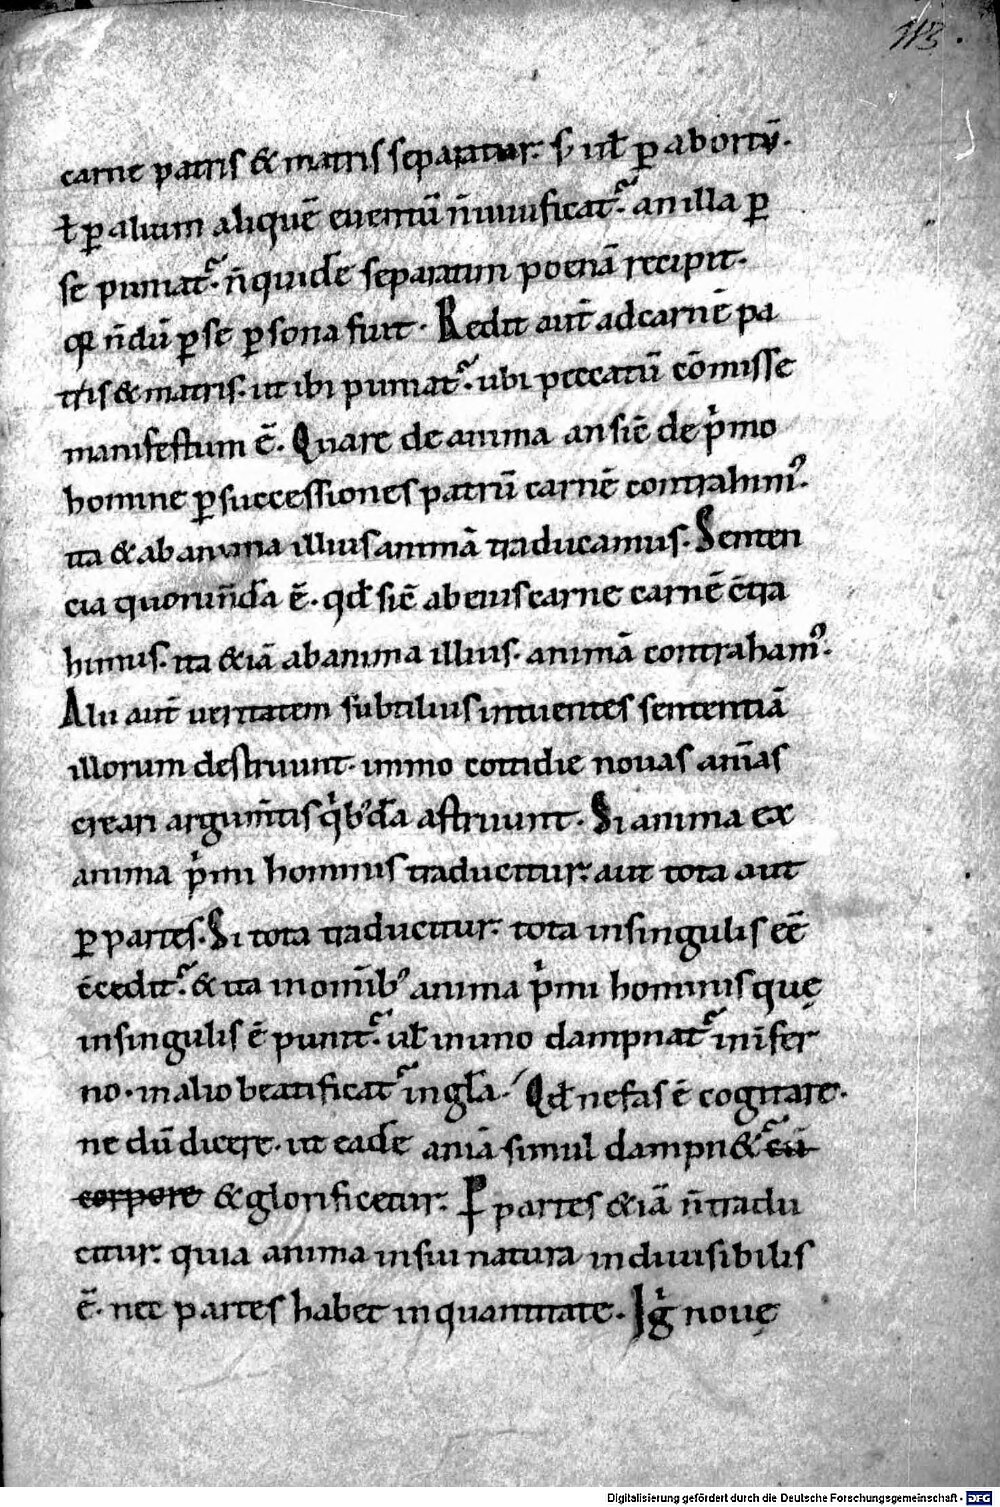 113.
carne patris & matris separatur. s; ut̄ ꝑ abortū.
ł ꝑ alium aliquē euentū n̄ uiuificat᷑. an illa ꝑ
se puniat᷑. n̄ quidē separatim poenā recipit.
qꝛ n̄dū ꝑ se ꝑsona fuit. Redit aut̄ ad carnē pa
tris & matris. ut ibi puniat᷑. ubi peccatū cōmisse
manifestum ē. Quare de anima an sic̄ de pͥmo
homine ꝑ successiones patrū carnē contrahimꝰ.
ita & ab anima illius animā traducamus. Senten
cia quorun̄dā ē. qđ sic̄ ab eius carne carnē c̄tra
himus. ita &iā ab anima illius. animā contrahamꝰ.
Alii aut̄ ueritatem subtilius intuentes sententiā
illorum destruunt. immo cottidie nouas anīas
creari argum̄tis qͥbꝰdā astruunt. Si anima ex
anima pͥmi hominis traducitur. aut tota aut
ꝑ partes. Si tota traducitur. tota in singulis eē
c̄cedit᷑. & ita in omībꝰ anima pͥmi hominis quę
in singulis ē punit᷑. ut̄ in uno dampnat᷑ in īfer
no. in alio beatificat᷑ in gła. Qđ nefas ē cogitare.
ne dū dicere. ut eadē aniā simul dampn&᷑ cū
corpore & glorificetur. Ꝑ partes &iā n̄ tradu
citur. quia anima in sui natura indiuisibilis
ē. nec partes habet in quantitate. Igͥ nouę
Digitalisierung gefördert durch die Deutsche Forschungsgemeinschaft - DFG